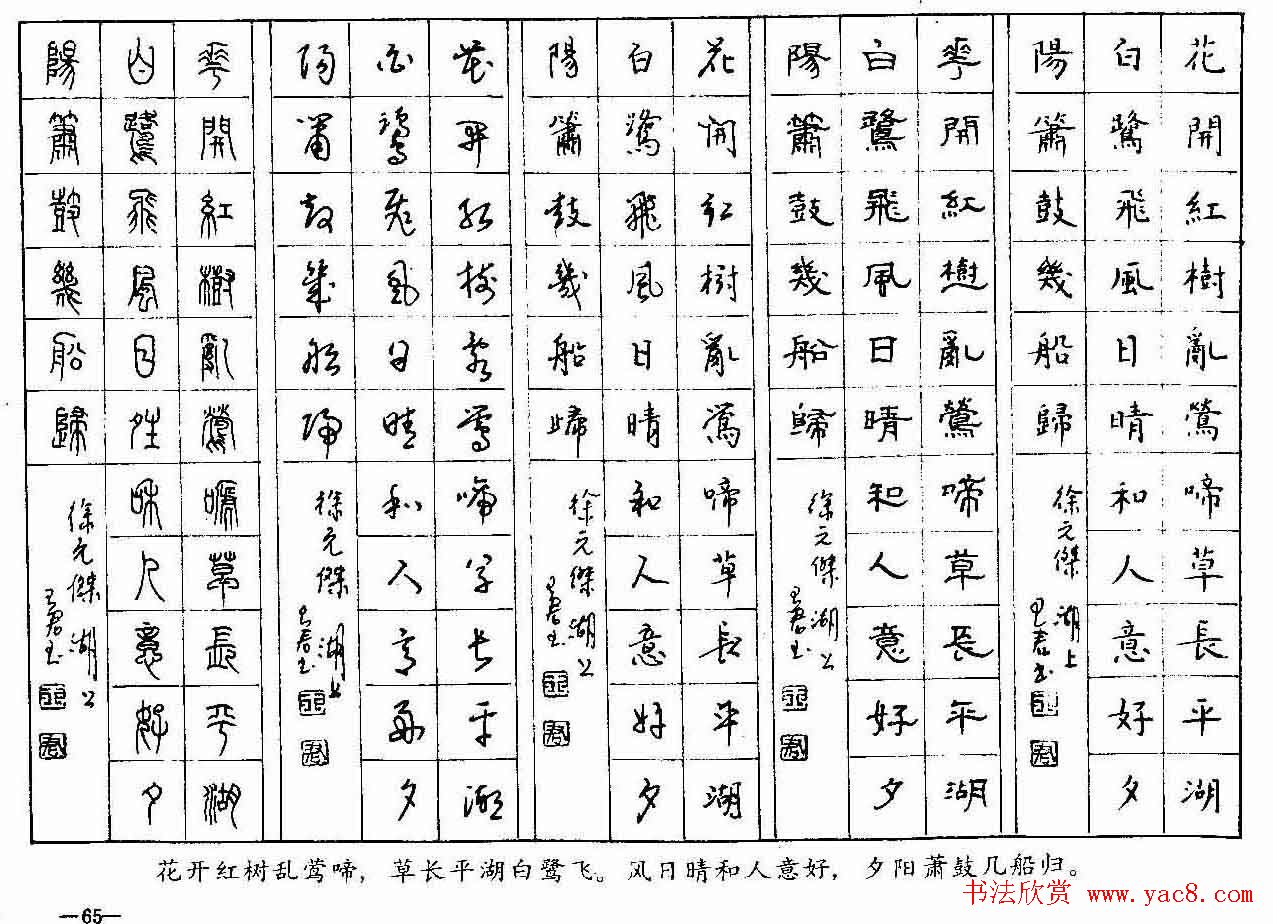 花開紅樹亂鶯啼草長平湖
白鷺飛風日晴和人意好夕
陽簫鼓幾船歸 徐元傑 湖上
花開紅樹亂鶯啼草長平湖
白鷺飛風日晴和人意好夕
陽簫鼓幾船歸 徐元傑 湖上
花開紅樹亂鶯啼草長平湖
白鷺飛風日晴和人意好夕
陽簫鼓幾船歸 徐元傑 湖上
花開紅樹亂鶯啼草長平湖
白鷺飛風日晴和人意好夕
陽簫鼓幾船歸 徐元傑 湖上
花開紅樹亂鶯啼草長平湖
白鷺飛風日晴和人意好夕
陽簫鼓幾船歸 徐元傑 湖上
花开红树乱莺啼，草长平湖白鹭飞。风日晴和人意好，夕阳萧鼓几船归。
—65—
书法欣赏 www.yac8.com